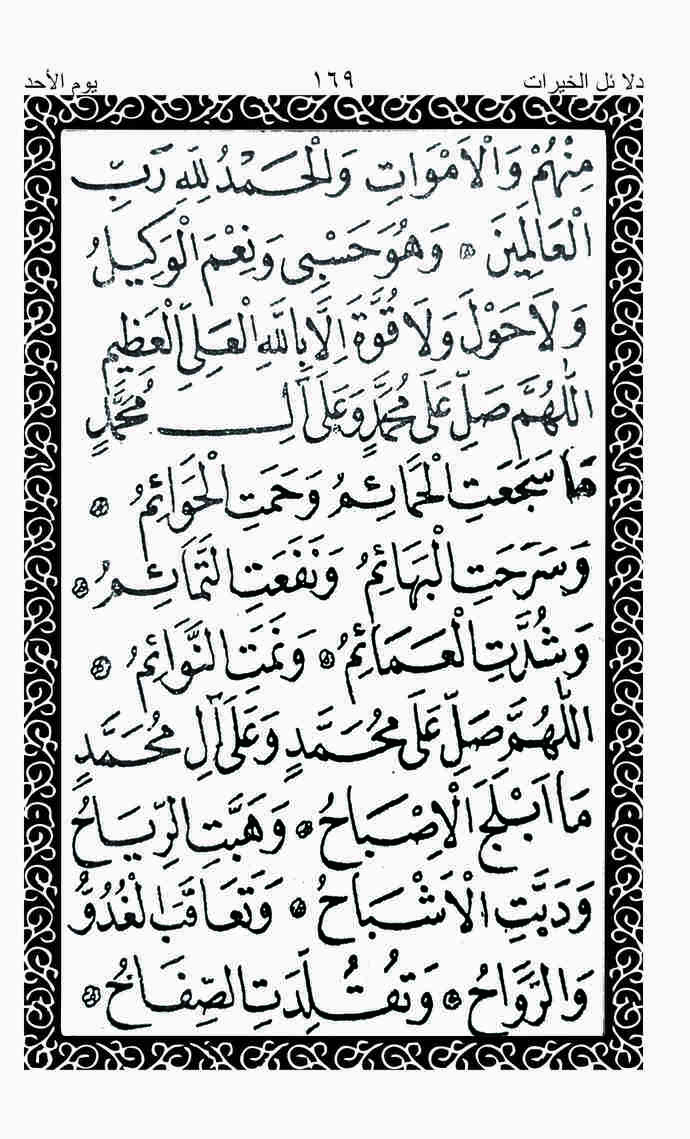 دلائل الخيرات ١٦٩ يوم الأحد
مِنْهُمْ وَالْاَمْوَاتِ وَالْحَمْدُ لِلّٰهِ رَبِّ
الْعَالَمِينَ ۞ وَهُوَ حَسْبِى وَنِعْمَ الْوَكِيلُ
وَلَا حَوْلَ وَلَا قُوَّةَ اِلَّا بِاللّٰهِ الْعَلِىِّ الْعَظِيمِ
اَللّٰهُمَّ صَلِّ عَلَى مُحَمَّدٍ وَعَلَى آلِ مُحَمَّدٍ
مَا سَجَعَتِ الْحَمَائِمُ وَحَمَتِ الْحَوَائِمُ ۞
وَسَرَحَتِ الْبَهَائِمُ وَنَفَعَتِ التَّمَائِمُ ۞
وَشُدَّتِ الْعَمَائِمُ ۞ وَنَمَتِ النَّوَائِمُ ۞
اَللّٰهُمَّ صَلِّ عَلَى مُحَمَّدٍ وَعَلَى آلِ مُحَمَّدٍ
مَا اَبْلَجَ الْاِصْبَاحُ ۞ وَهَبَّتِ الرِّيَاحُ
وَدَبَّتِ الْاَشْبَاحُ ۞ وَتَعَاقَبَ الْغُدُوُّ
وَالرَّوَاحُ ۞ وَتُقُلِّدَتِ الصِّفَاحُ ۞